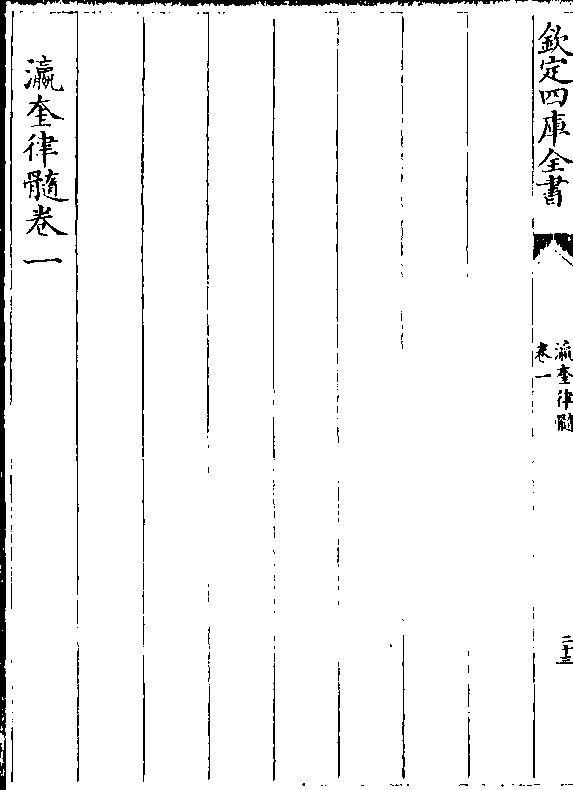 欽定四庫全書
瀛奎律髓
卷一
二十三
瀛奎律髓卷一